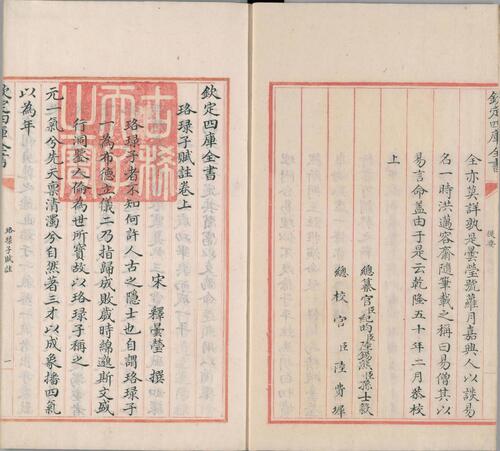 欽定四庫全書
提要
全亦莫詳孰是曇瑩號蘿月嘉興人以談易
名一時洪邁容齋隨筆載之稱曰易僧其以
易言命蓋由于是云乾隆五十年二月恭校
上
總纂官臣紀昀臣陸錫熊臣孫士毅
總校官臣陸費墀
古稀天子之寶
欽定四庫全書
珞琭子賦註卷上
宋 釋曇瑩 撰
珞琭子者不知何許人古之隱士也自謂珞琭子
一為布德立儀二乃指歸成敗歲時綿邈斯文盛
行洞鑒人倫為世所寶故以珞琭子稱之
元一氣兮先天稟清濁兮自然著三才以成象播四氣
以為年
欽定四庫全書
珞琭子賦註
一